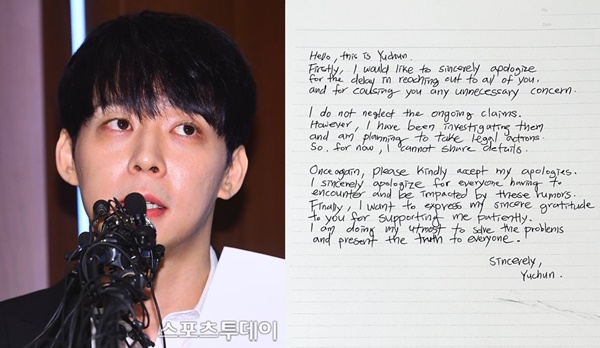 Hello, this is Yuchun.
Firstly, I would like to sincerely apologize
for the delay in reaching out to all of you.
and for causing you any unnecessary concern.
I do not neglect the ongoing claims.
However, I have been investigating them
and am planning to take legal actions.
So, for now, I cannot share details.
Once again, please kindly accept my apologies.
I sincerely apologize for everyone having to
encounter and be impacted by these rumors.
Finally, I want to express my sincere gratitude
to you for supporting me patiently.
I am doing my utmost to solve the problems
and present the truth to everyone.
Sincerely,
Yuchun.
스포츠투데이